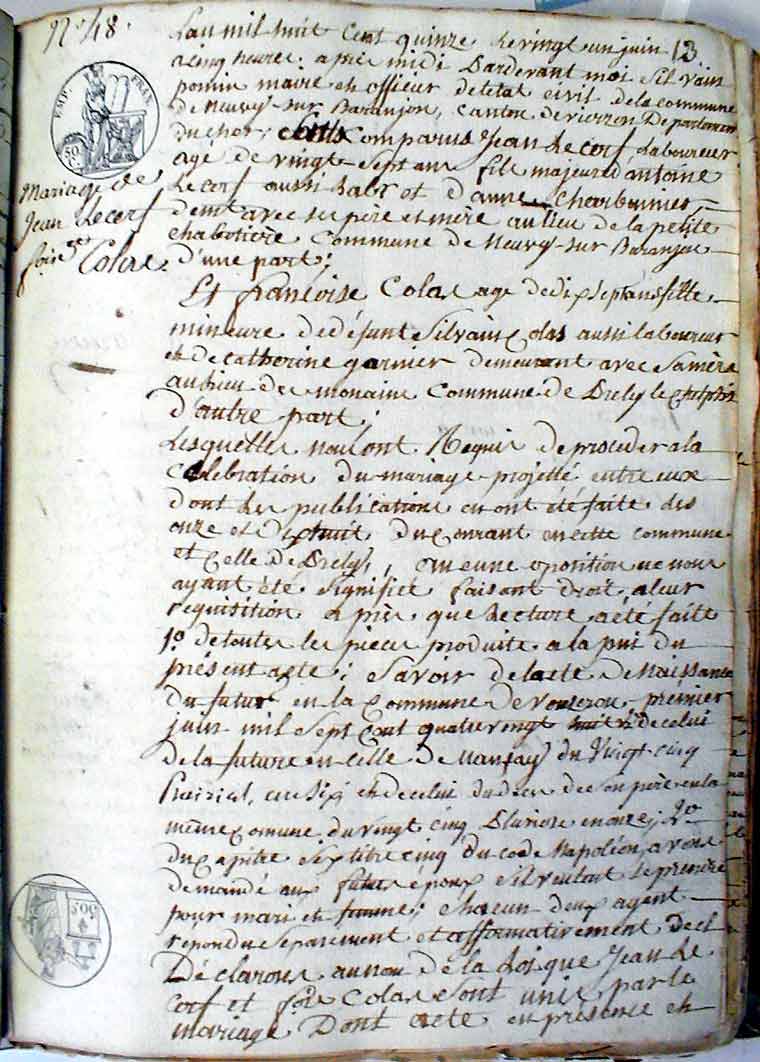 N° 48.
13
EMP. FRAN.
50 C.
Mariage de
Jean Lecorf
foise Colas
Lan mil huit Cent quinze le vingt un juin
a cinq heures apres midi Pardevant moi Silvain
maire et officier de letat civil de la commune
de Neuvy-sur Baranjon, canton de vierzon Departement
du cher, Sont Comparus Jean Lecorf Laboureur
agé de vingt Sept ans fils majeur d'antoine
Lecorf aussi Labr et d'anne Charbonnier,
demt avec ses pere et mère au lieu de la petite
chabotiere Commune de Neuvy-sur Baranjon
d'une part;
Et francoise Colas age de dix sept ans fille
mineure de défunt Silvain Colas aussi laboureur
et de catherine garnier demeurant avec Sa mère
au lieu des monains Commune de
d'autre part;
Lesquelles nous ont Requis de proceder a la
Celebration du mariage projetté entre eux
dont les publications en ont été faite des
onze et dixhuit du Courant en cette commune
et Celle de, aucune oposition ne nous
ayant été Signifiée faisant droit a leur
requisition apres que Lecture a été faite
1° de toutes les pieces produite a la pui du
présent acte; Savoir de lacte de Naissance
du futur en la Commune de vouzeron premier
juin mil Sept Cent quatrevingt huit de celui
de la future en celle de du vingt cinq
Prairial, an Six et de celui du deces de Son père en la
même Comune du vingt cinq Pluviose an onze; 2°
du Capitre Six libre cinq du code Napoléon, avons
demandé aux futurs époux Sil veulent Se prendre
pour mari et femme; chacun deux ayant
répondu Séparement et affirmativement
Déclarons au nom de la Loi que Jean Le
corf et foise Colas Sont unis par le
mariage Dont acte en présence et
50 C.